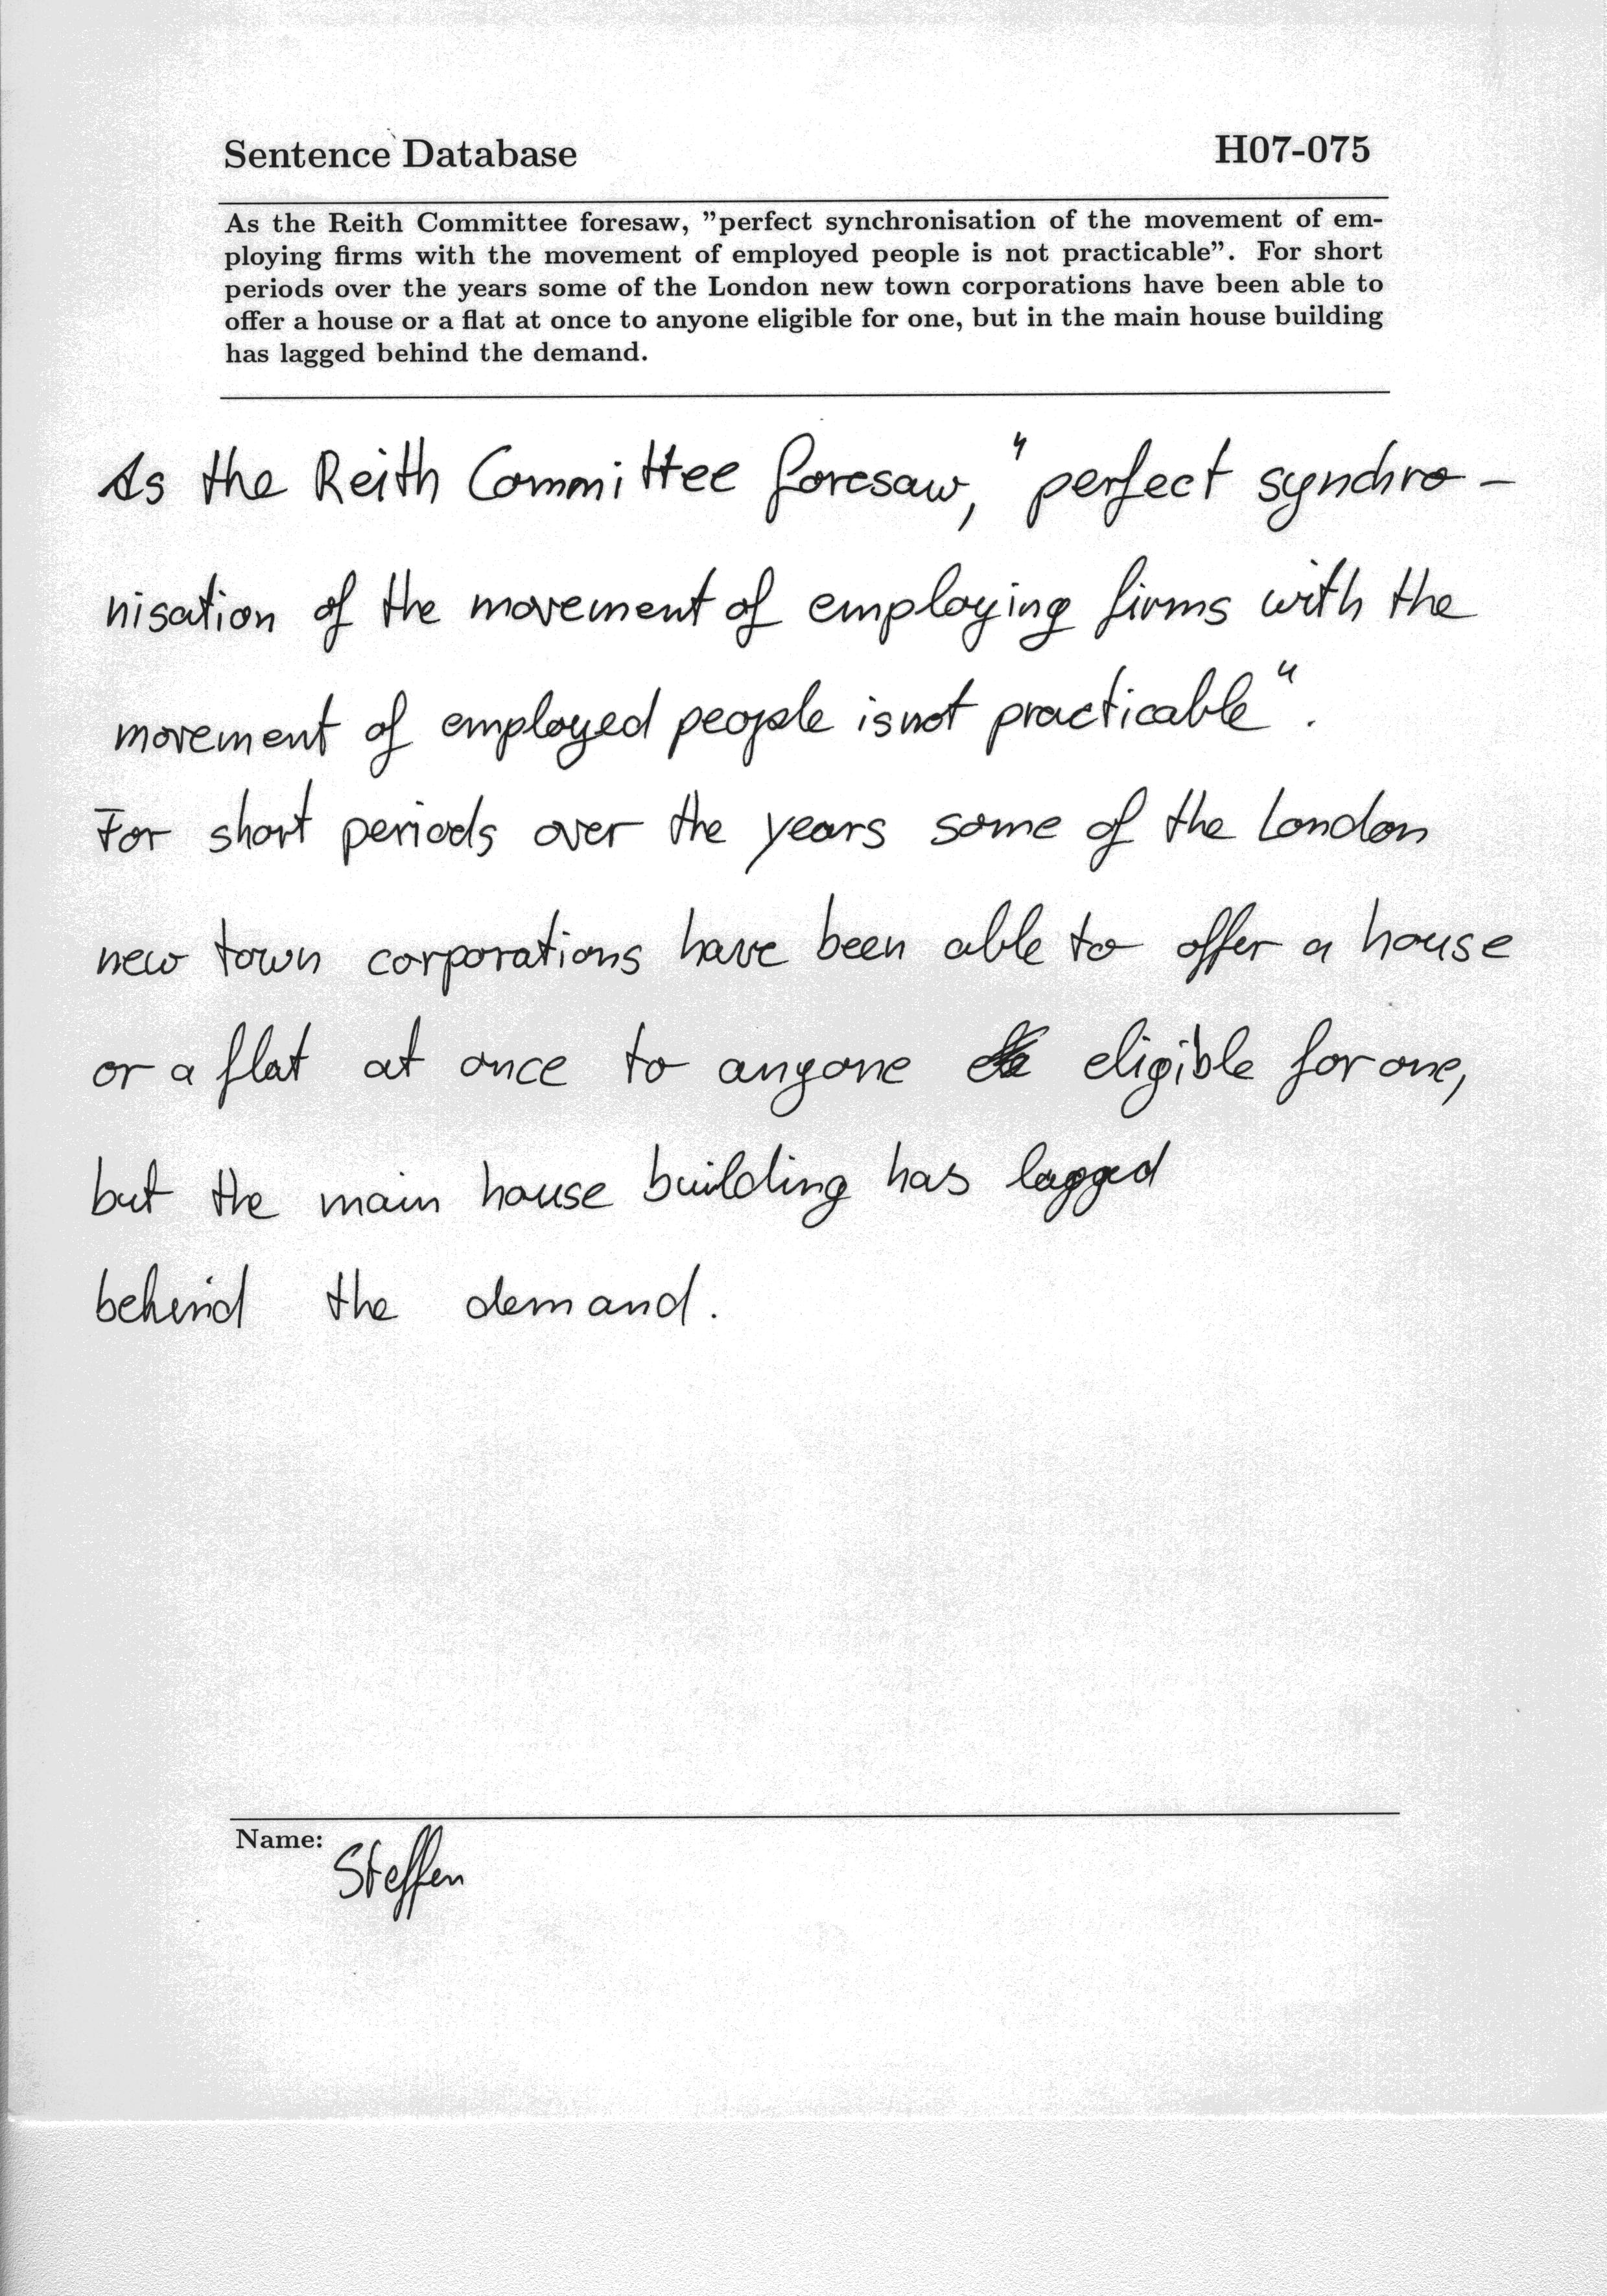 Sentence Database H07-075
As the Reith Committee foresaw, ”perfect synchronisation of the movement of em-
ploying firms with the movement of employed people is not practicable”. For short
periods over the years some of the London new town corporations have been able to
offer a house or a flat at once to anyone eligible for one, but in the main house building
has lagged behind the demand.
As the Reith Committee foresaw, "perfect synchro-
nisation of the movement of employing firms with the
movement of employed people is not practicable".
For short periods over the years some of the London
new town corporations have been able to offer a house
or a flat at once to anyone eligible for one,
but the main house building has lagged
behind the demand.
Name:
Steffen